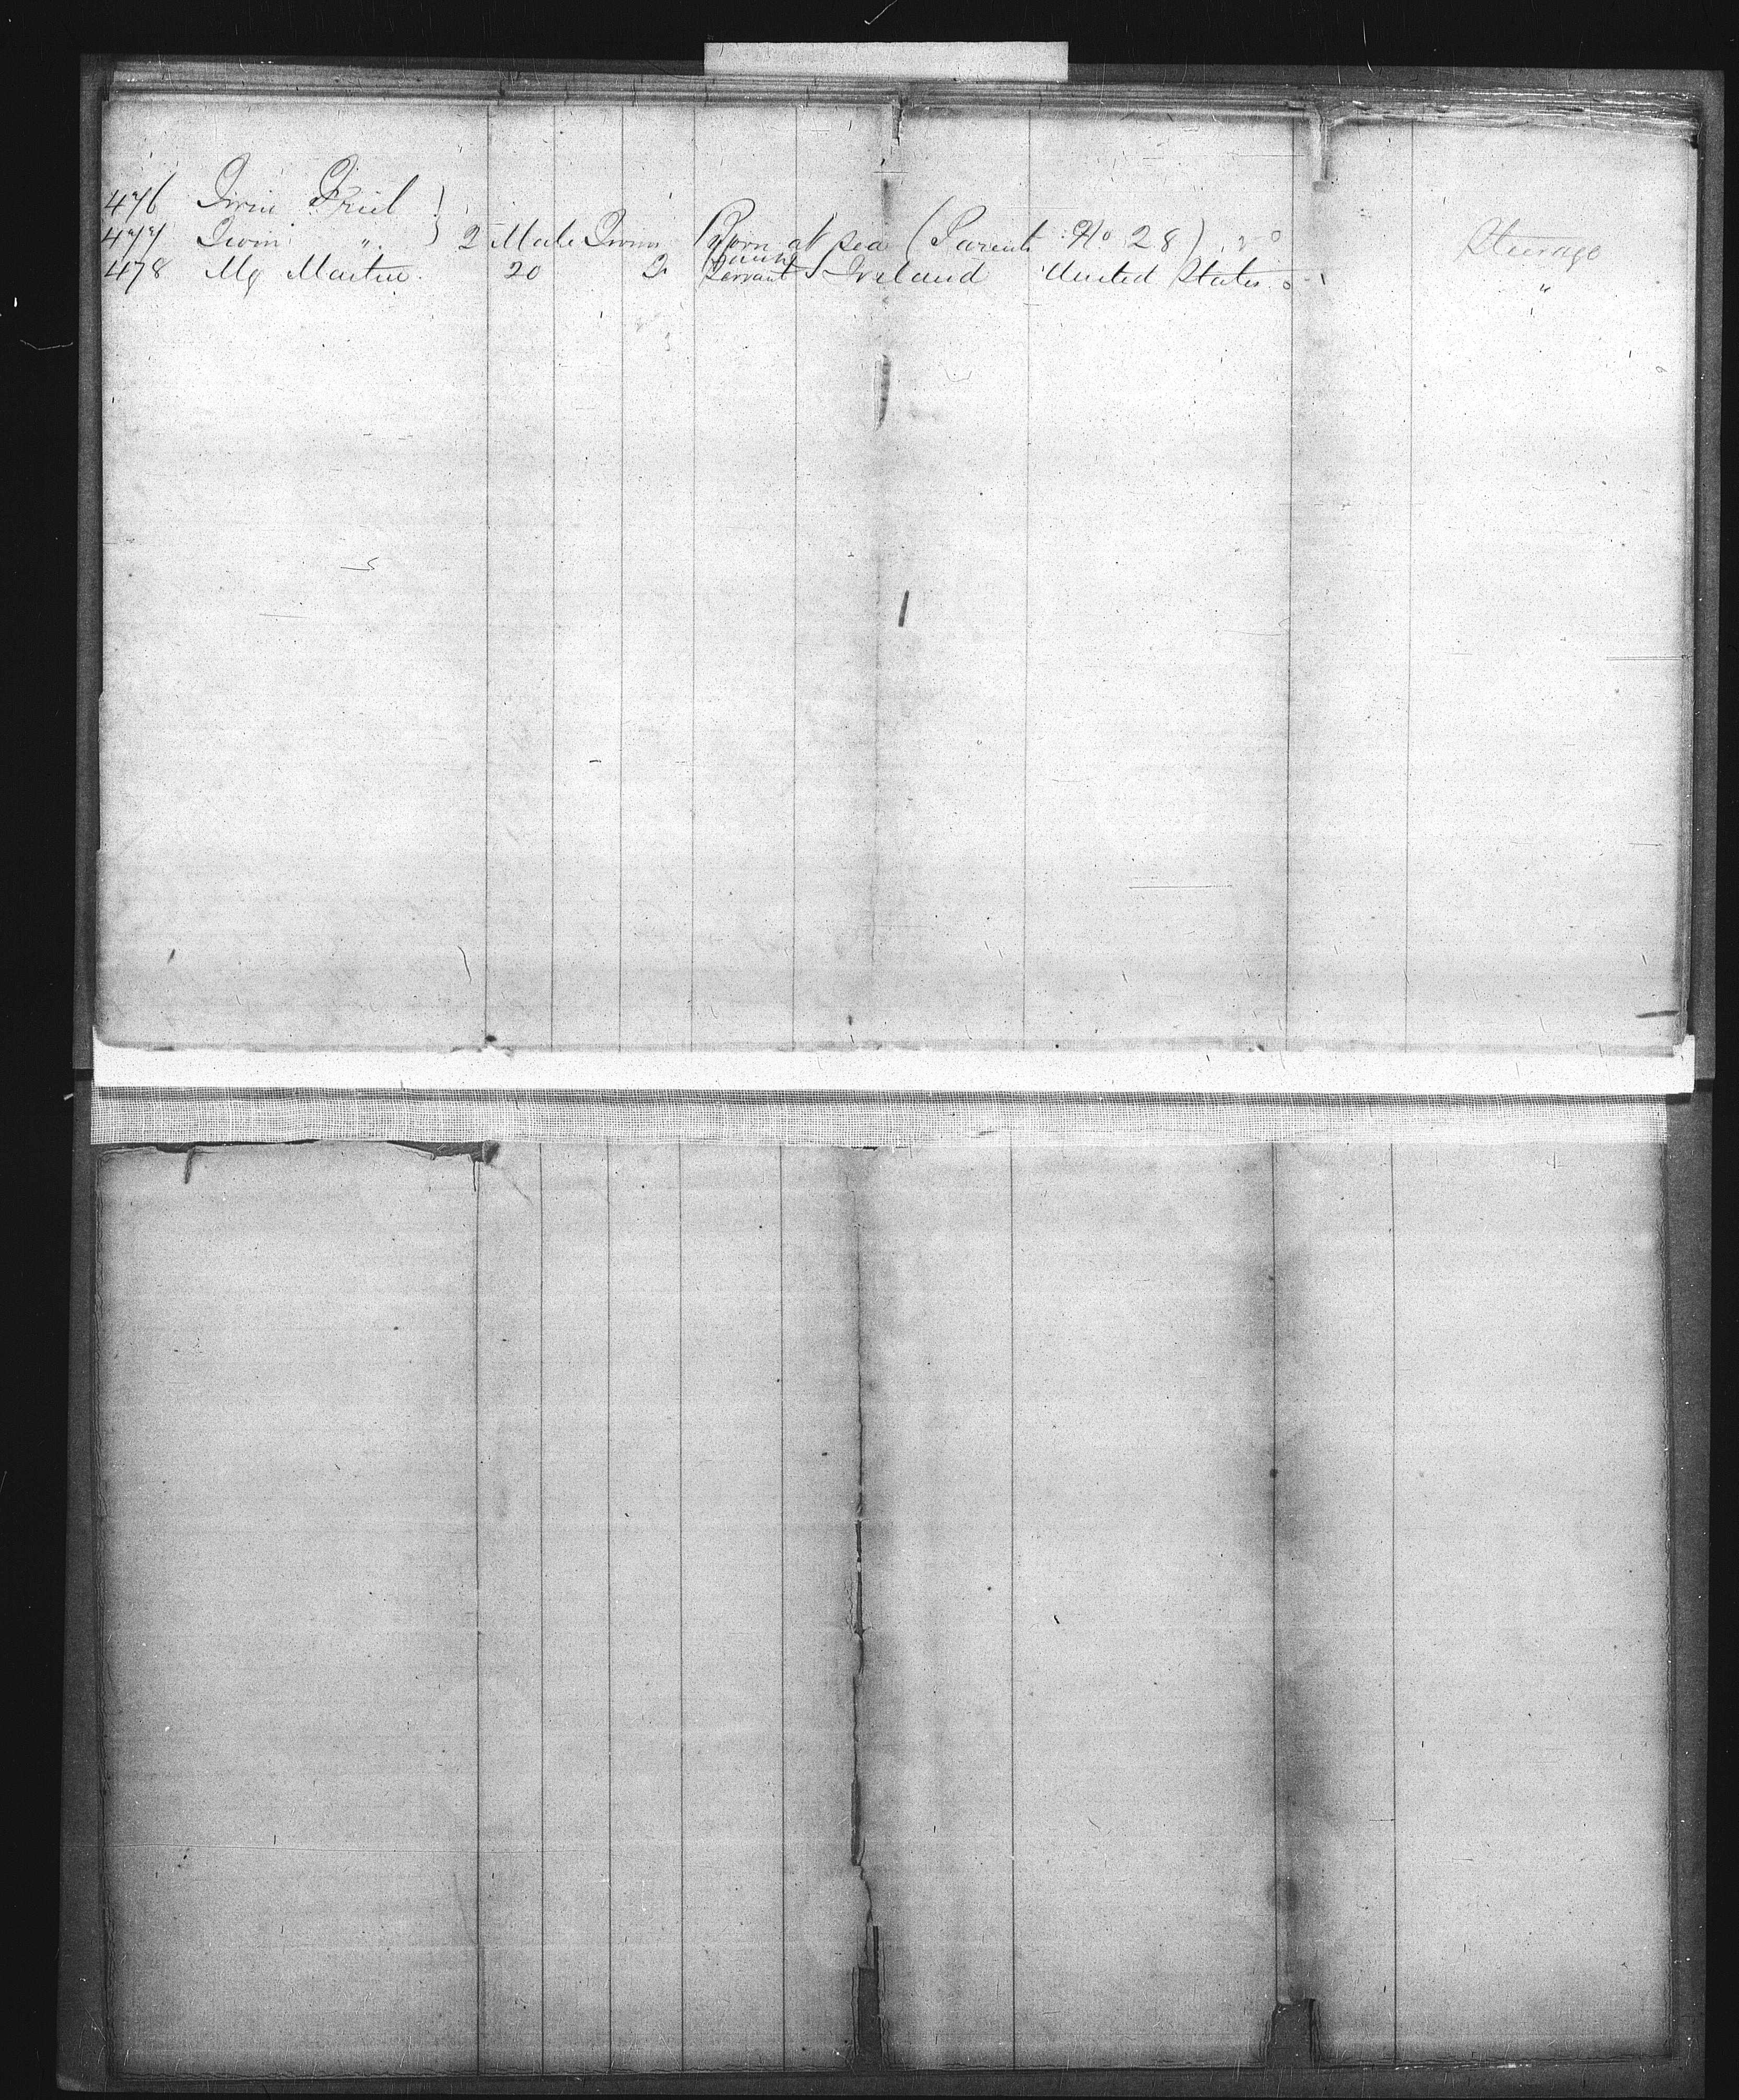 476 Twin Friel }
477 Twin " } 2 Male Twins Born at sea (Parents No 28) Steerage
478 Mg Martin 20 2 Servant Ireland United States "